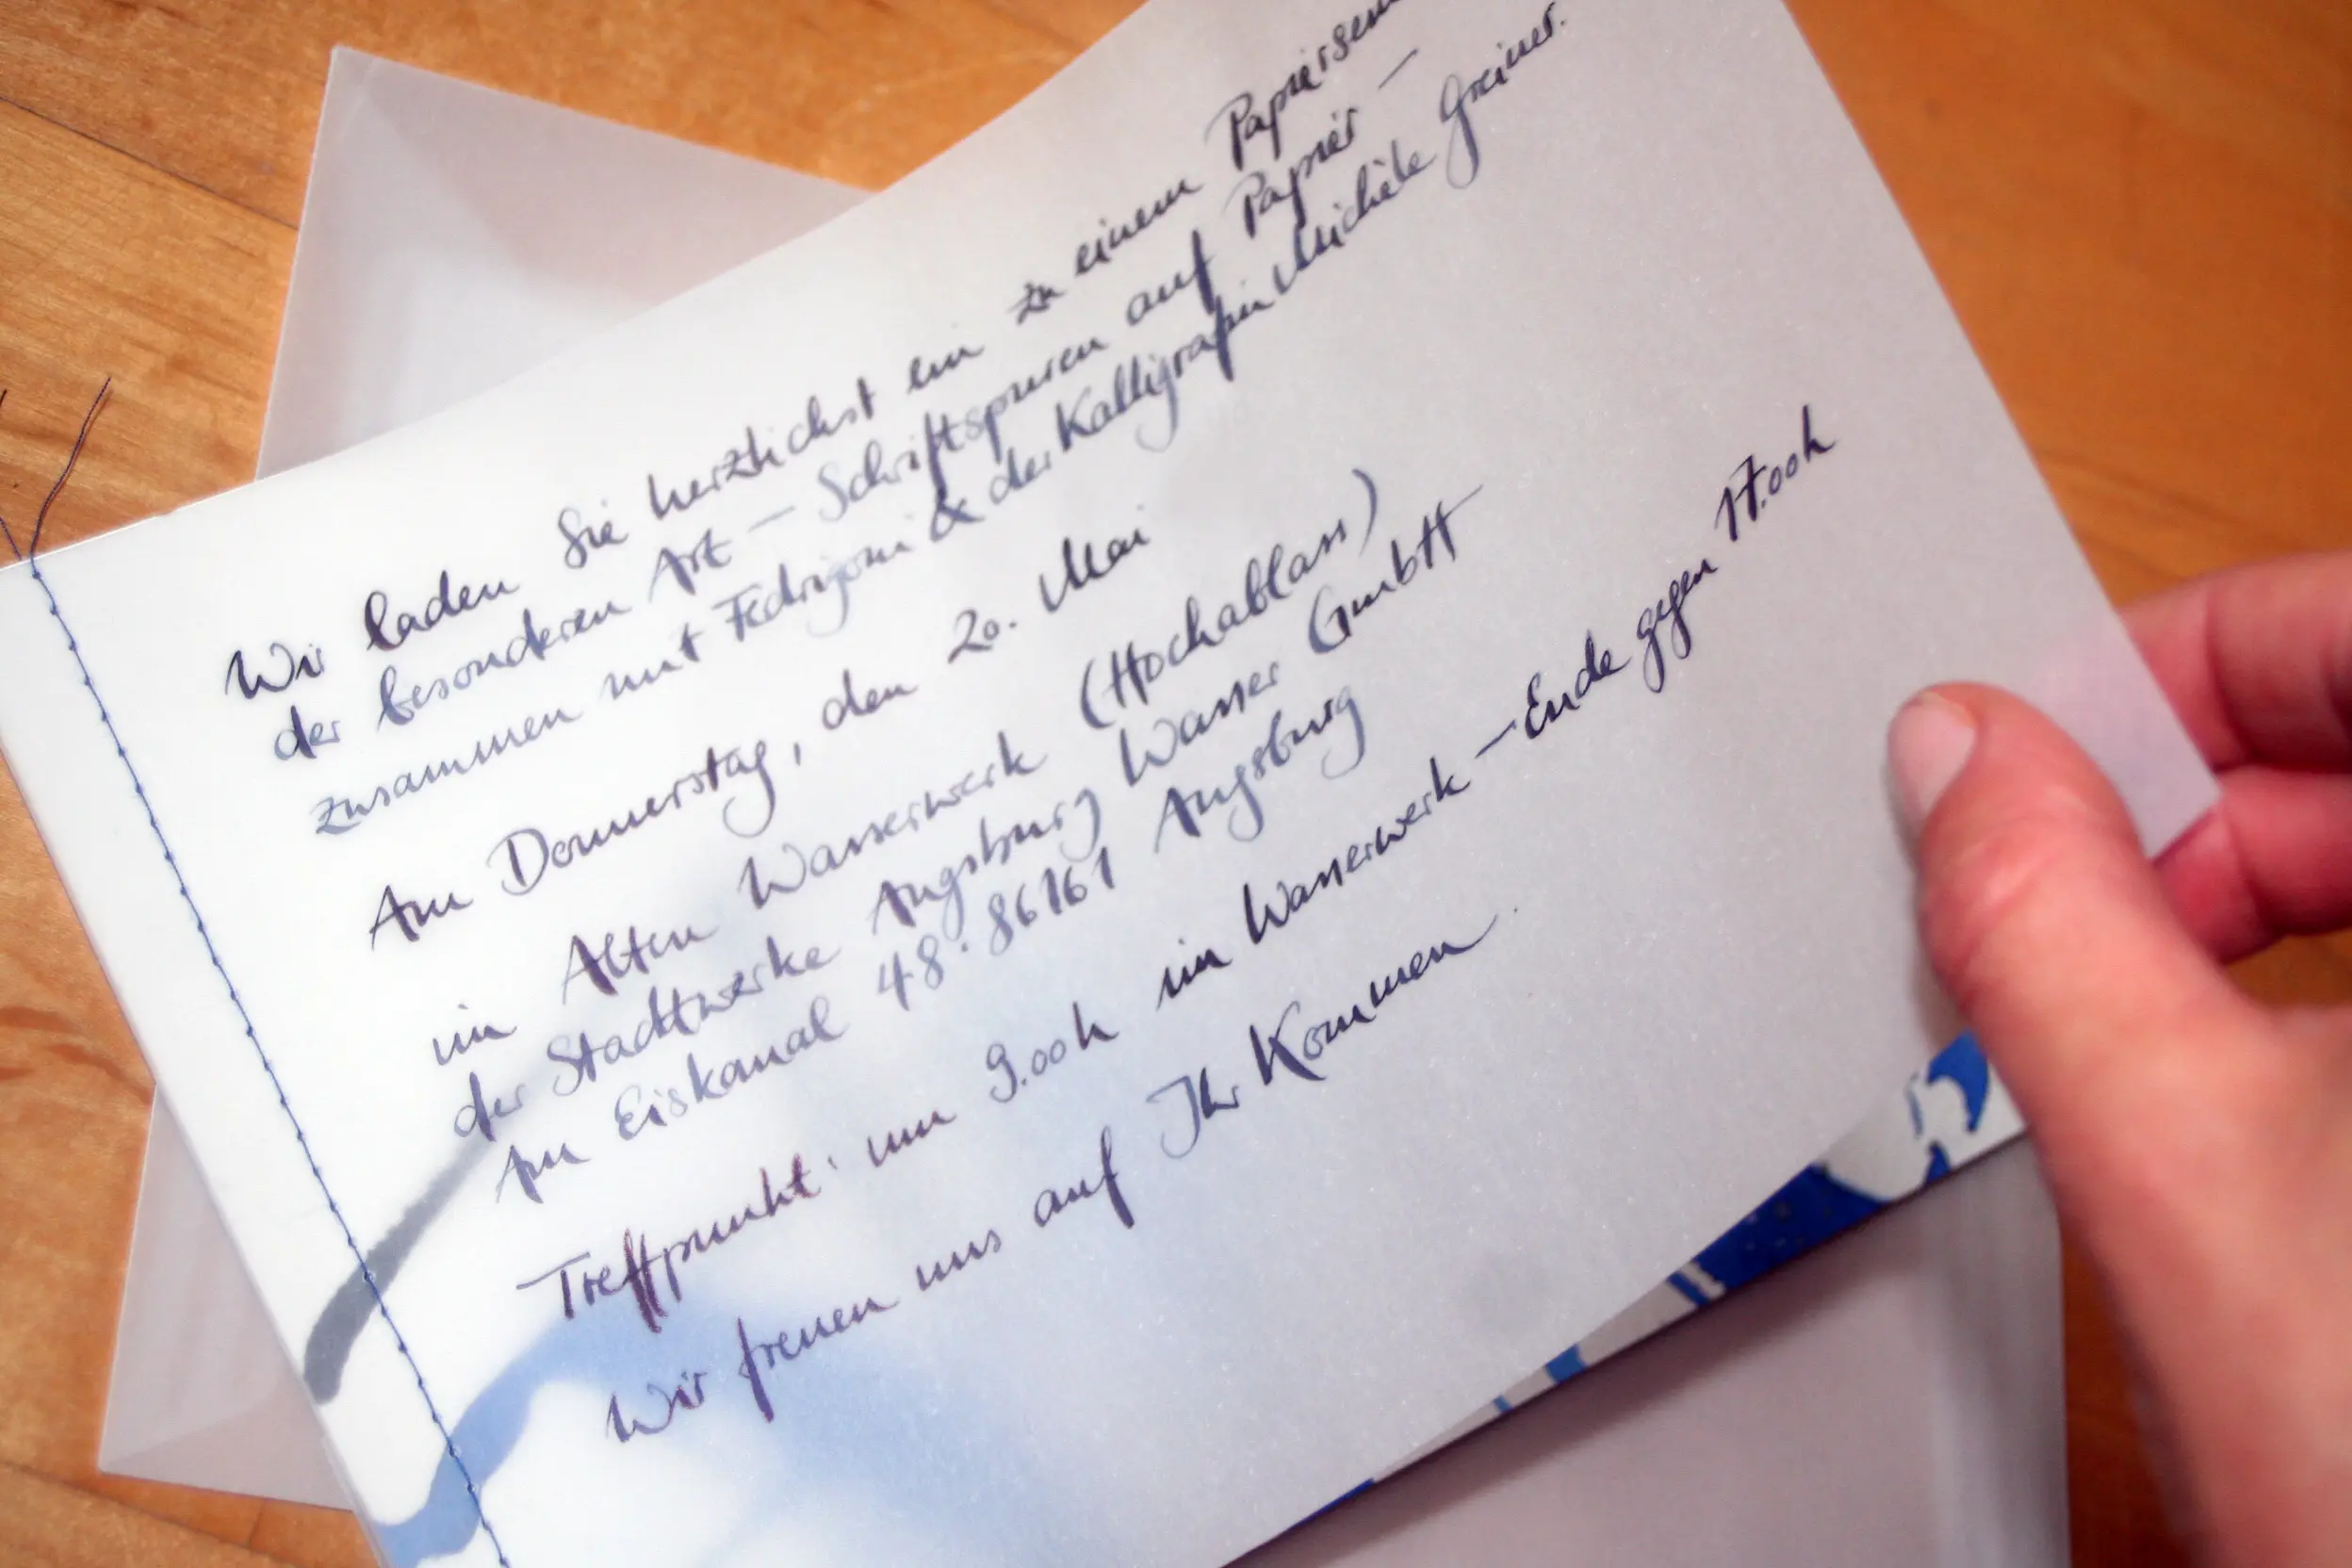 Wir laden Sie herzlichst ein zu einem
der besonderen Art – Schriftspuren auf Papier –
zusammen mit Fedrigoni & der Kalligrafin Michèle Greiner.
Am Donnerstag, den 20. Mai
im Alten Wasserwerk (Hochablass)
der Stadtwerke Augsburg Wasser GmbH
Am Eiskanal 48 · 86161 Augsburg
Treffpunkt: um 9.00h im Wasserwerk – Ende gegen 17.00h
Wir freuen uns auf Ihr Kommen.